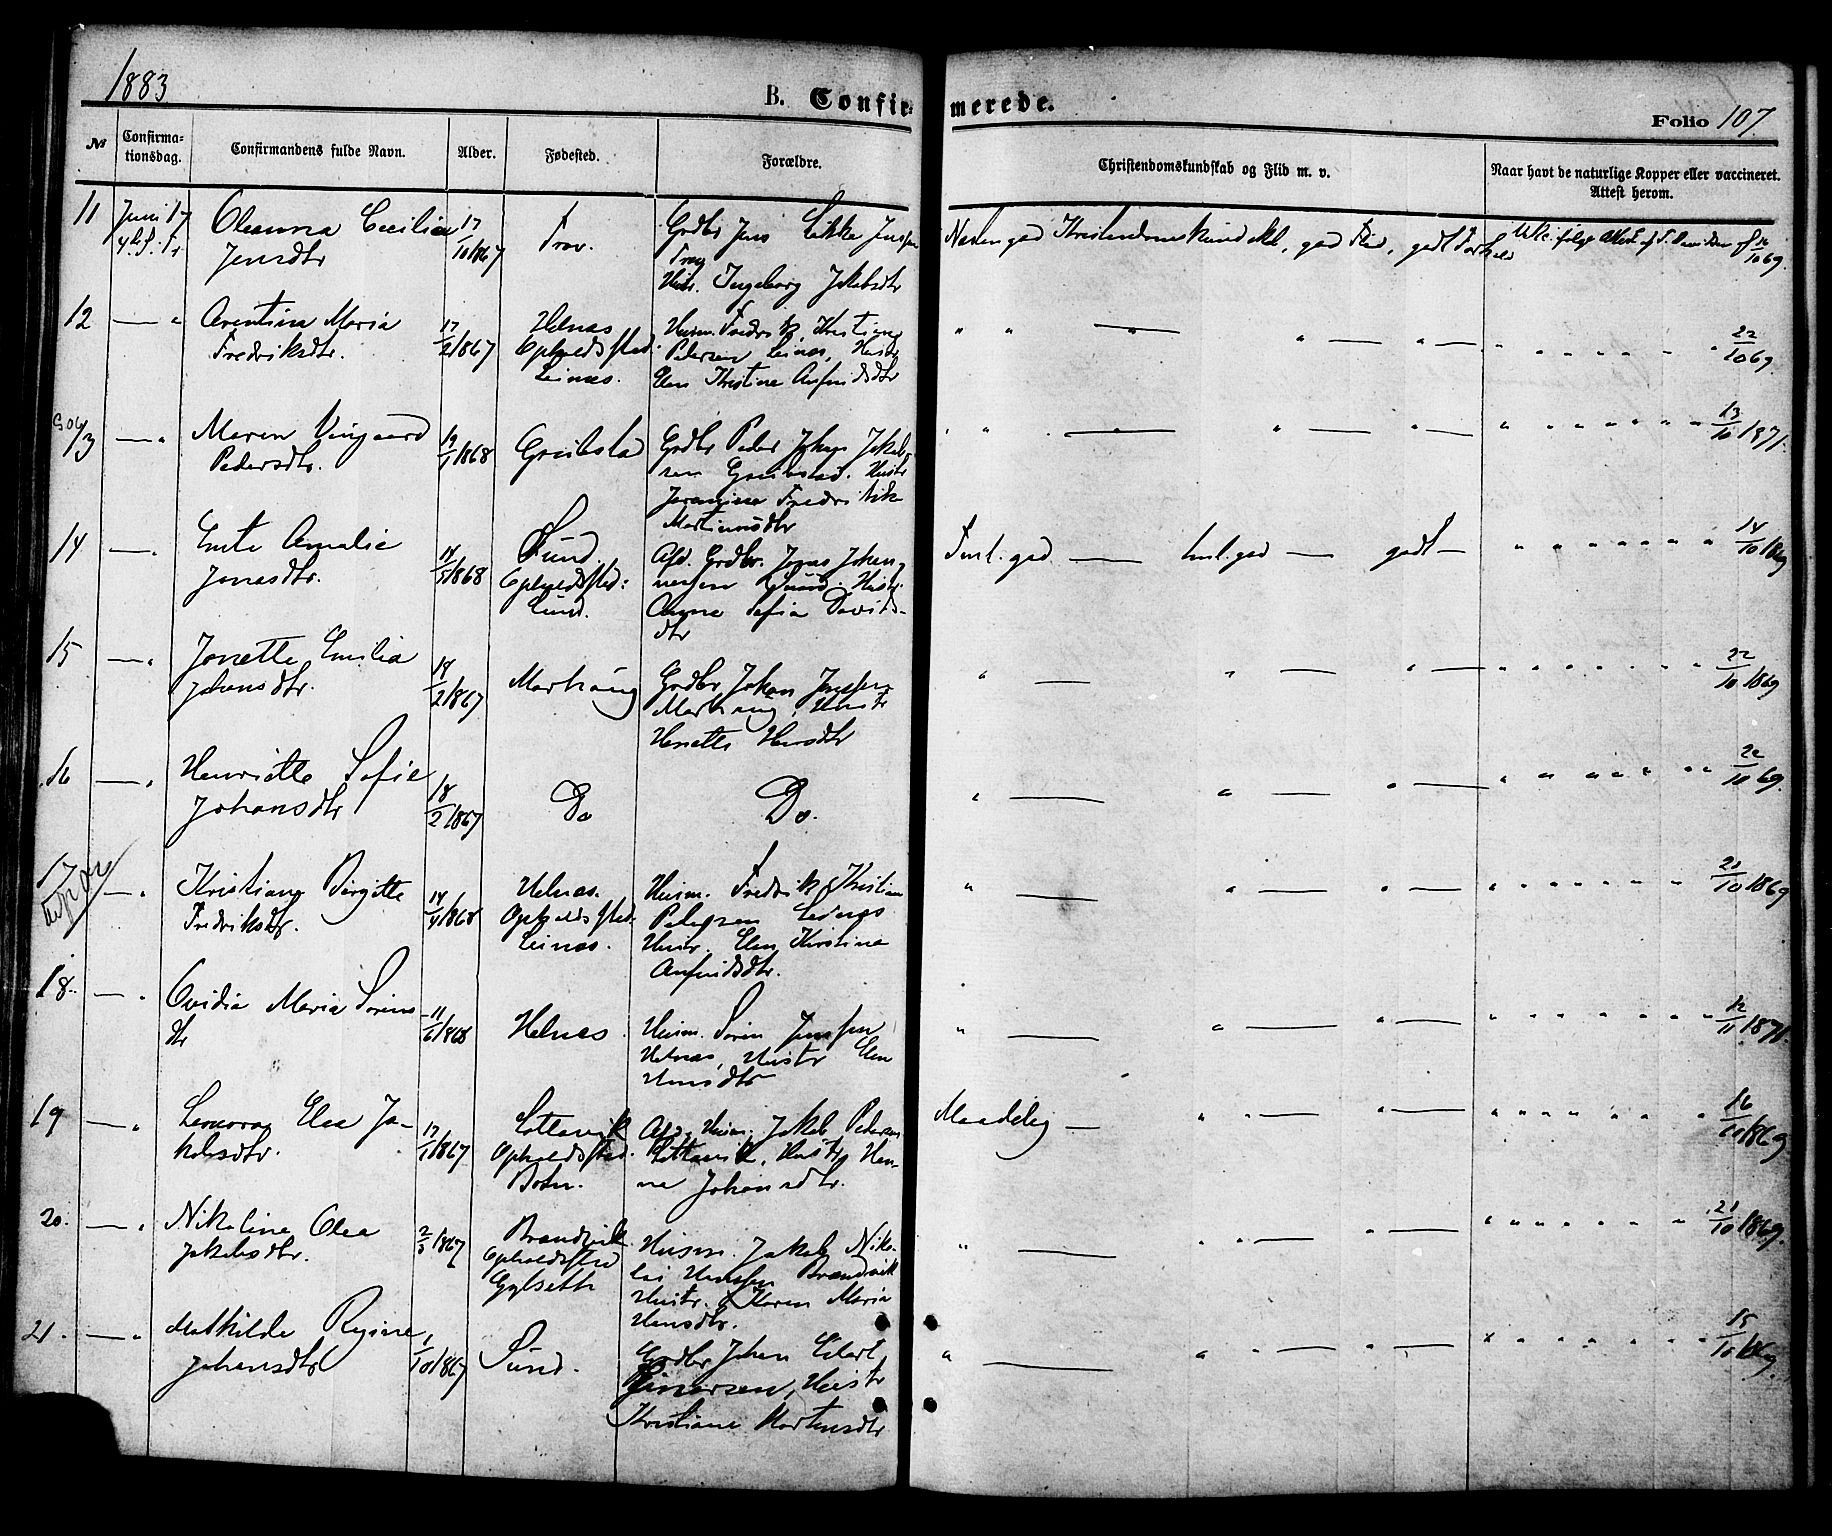 1883
B. Confir-
merede.
Folio 107
№
Confirma-
tionsdag.
Confirmandens fulde Navn.
Alder.
Fødested.
Forældre.
Christendomskundskab og Flid m. v.
Naar havt de naturlige Kopper eller vaccineret.
Attest herom.
11 Juni 17
Oleanna Cecilia
Jensdtr
17/10 1867
Trav.
Grdbr Jens Jenssen
Trav
Hustr. Ingeborg Jakobsdtr
god Kristendomskundskab, god Flid, godt Forhold
ifølge Attest af
/10 69.
12 — "
Arentine Maria
Fredriksdtr.
17/2 1867
Helnæs
Opholdssted:
Leinæs.
Husm. Fredrik Kristian
Pedersen Leinæs, Hustr
Elen Kristine Anfindsdtr
" " — " — " — " —
22/10 69.
13 — "
Maren Vingaard
Pedersdtr.
19/1 1868
Greibstad
Grdbr Peder Johan Jakob-
sen Greibstad. Hustr
Fredrikke
Martinusdtr
" " — " — " — " —
13/10 1871.
14 — "
Amalie
Jonasdtr.
14/5 1868
Sund.
Opholdssted:
Sund.
Afd. Grdbr. Jonas Johan-
nessen Sund. Hustr.
Anne Sofia Davids-
dtr
god — god — godt —
14/10 1869
15 — "
Jonette Emilia
Johansdtr.
18/2 1867
Marhaug
Grdbr. Johan Jenssen
Marhaug, Hustr
Henette Hansdtr
" — " — " —
22/10 1869
16 — "
Henriette Sofie
Johansdtr
18/2 1867
Do
Do.
" — " — " —
22/10 69.
17 — "
Kristiane Birgitte
Fredriksdtr.
14/4 1868
Helnæs.
Opholdssted.
Leinæs.
Husm. Fredrik Kristian
Pedersen Leinæs
Hustr. Elen Kirstine
Anfindsdtr.
" — " — " —
21/10 1869
18 — "
Ovidia Maria Sørens-
dtr
11/6 1868
Helnæs.
Husm. Søren Jenssen
Helnæs, Hustr Elen
Hansdtr
" — " — " —
12/11 1871.
19 — "
Elea Ja-
kobsdtr.
17/1 1867
Sottavik
Opholdssted.
Botn.
Afd. Husm. Jakob Pedersen
Sottavik, Hustr Han-
na Johansdtr.
Maadelig —
16/ 1869
20. — "
Nikoline Olea
Jakobsdtr.
2/3 1867
Brandvik
Opholdssted
Gylseth
Husm. Jakob Niko-
lai Hanssen Brandvik
Hustr. Karen Maria
Hansdtr.
" — " — " —
21/10 1869.
21. — "
Mathilde Regine
Johansdtr
/10 1867
Sund.
Grdbr Johan Edart
Hustr
Kristiane Mortensdtr
" — " — " —
15/10 1869.